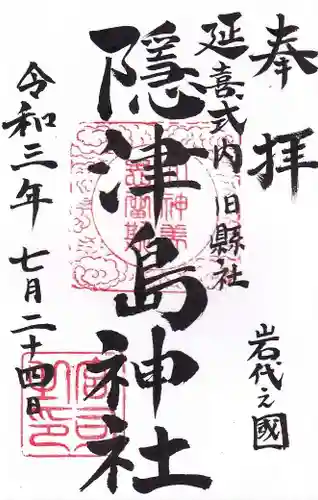 奉拝
岩代之國
延喜式内 旧縣社
隠津島神社
令和三年 七月二十四日